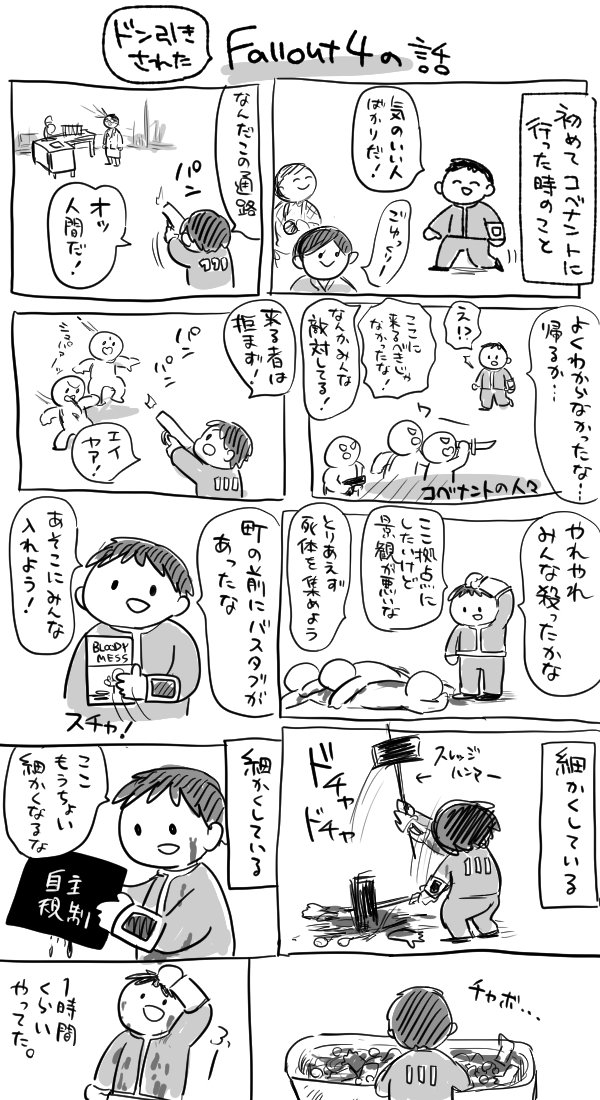 ドン引き
された
Fallout4の話
初めてコベナントに
行った時のこと
気のいい人
ばかりだ!
ごゆっくり!
なんだこの通路
パン
オッ
人間だ!
よくわからなかったな…
帰るか…
え!?
ここに
来るべきじゃ
なかったな!
なんかみんな
敵対してる!
ワー
コベナントの人々
来る者は
拒まず!
パン
パン
ショバァッ
エイ
ヤア!
やれやれ
みんな殺ったかな
ここ拠点に
したいけど
景観が悪いな
とりあえず
死体を集めよう
町の前にバスタブが
あったな
あそこにみんな
入れよう!
BLOODY
MESS
スチャ!
細かくしている
スレッジ
ハンマー
ドチャ
ドチャ
細かくしている
ここ
もうちょい
細かくなるな
自主
規制
チャポ…
ふぅー
1時間
くらい
やってた。